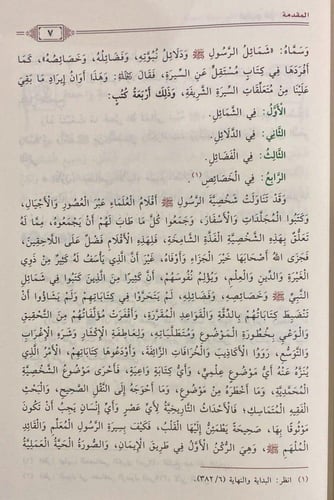 المقدمة
٧
وَسَمَّاهُ: «شَمَائِلُ الرَّسُولِ ﷺ وَدَلَائِلُ نُبُوَّتِهِ، وَفَضَائِلُهُ، وَخَصَائِصُهُ»، كَمَا
أَفْرَدَهَا فِي كِتَابٍ مُسْتَقِلٍّ عَنِ السِّيرَةِ، فَقَالَ رَحِمَهُ اللهُ: وَهَذَا أَوَانُ إِيرَادِ مَا بَقِيَ
عَلَيْنَا مِنْ مُتَعَلِّقَاتِ السِّيرَةِ الشَّرِيفَةِ، وَذَلِكَ أَرْبَعَةُ كُتُبٍ:
الْأَوَّلُ: فِي الشَّمَائِلِ.
الثَّانِي: فِي الدَّلَائِلِ.
الثَّالِثُ: فِي الْفَضَائِلِ.
الرَّابِعُ: فِي الْخَصَائِصِ(١).
وَقَدْ تَنَاوَلَتْ شَخْصِيَّةَ الرَّسُولِ ﷺ أَقْلَامُ الْعُلَمَاءِ عَبْرَ الْعُصُورِ وَالْأَجْيَالِ،
وَكَتَبُوا الْمُجَلَّدَاتِ وَالْأَسْفَارَ، وَجَمَعُوا كُلَّ مَا طَابَ لَهُمْ أَنْ يَجْمَعُوهُ، مِمَّا لَهُ
تَعَلُّقٌ بِهَذِهِ الشَّخْصِيَّةِ الْفَذَّةِ الشَّامِخَةِ، فَلِهَذِهِ الْأَقْلَامِ فَضْلٌ عَلَى اللَّاحِقِينَ،
فَجَزَى اللهُ أَصْحَابَهَا خَيْرَ الْجَزَاءِ وَأَوْفَاهُ، غَيْرَ أَنَّ الَّذِي يَأْسَفُ لَهُ كَثِيرٌ مِنْ ذَوِي
الْغَيْرَةِ وَالدِّينِ وَالْعِلْمِ، وَيُؤْلِمُ نُفُوسَهُمْ، أَنَّ كَثِيرًا مِنَ الَّذِينَ كَتَبُوا فِي شَمَائِلِ
النَّبِيِّ ﷺ وَخَصَائِصِهِ، وَفَضَائِلِهِ، لَمْ يَتَحَرَّوْا فِي كِتَابَاتِهِمْ وَلَمْ يَشَاؤُوا أَنْ
تَنْضَبِطَ كِتَابَاتُهُمْ بِالدِّقَّةِ وَالْقَوَاعِدِ الْمُقَرَّرَةِ، وَأَقْفَرَتْ مُؤَلَّفَاتُهُمْ مِنَ التَّحْقِيقِ
وَالْوَعْيِ بِخُطُورَةِ الْمَوْضُوعِ وَمُتَطَلَّبَاتِهِ، وَلِعَاطِفَةِ الْإِكْثَارِ وَشَرَهِ الْإِغْرَابِ
وَالتَّوَسُّعِ، رَوَوُا الْأَكَاذِيبَ وَالْخُرَافَاتِ الزَّائِفَةَ، وَأَوْدَعُوهَا كِتَابَاتِهِمْ، الْأَمْرُ الَّذِي
يُنَزَّهُ عَنْهُ أَيُّ مَوْضُوعٍ عِلْمِيٍّ، وَأَيُّ كِتَابَةٍ وَاعِيَةٍ، فَأَحْرَى مَوْضُوعُ الشَّخْصِيَّةِ
الْمُحَمَّدِيَّةِ، وَمَا أَخْطَرَهُ مِنْ مَوْضُوعٍ، وَمَا أَحْوَجَهُ إِلَى النَّقْلِ الصَّحِيحِ، وَالْبَحْثِ
الْفَقِيهِ الْمُتَمَاسِكِ؛ فَالْأَحْدَاثُ التَّارِيخِيَّةُ لِأَيِّ عَصْرٍ وَأَيِّ إِنْسَانٍ يَجِبُ أَنْ تَكُونَ
مَوْثُوقًا بِهَا، صَحِيحَةً يَطْمَئِنُّ إِلَيْهَا الْقَلْبُ، فَكَيْفَ بِسِيرَةِ الرَّسُولِ الْمُعَلِّمِ وَالْقَائِدِ
الْمُلْهَمِ ﷺ، وَهِيَ الرُّكْنُ الْأَوَّلُ فِي طَرِيقِ الْإِيمَانِ، وَالصُّورَةُ الْحَيَّةُ الْعَمَلِيَّةُ
(١) انظر: البداية والنهاية (٦/ ٣٨٢).